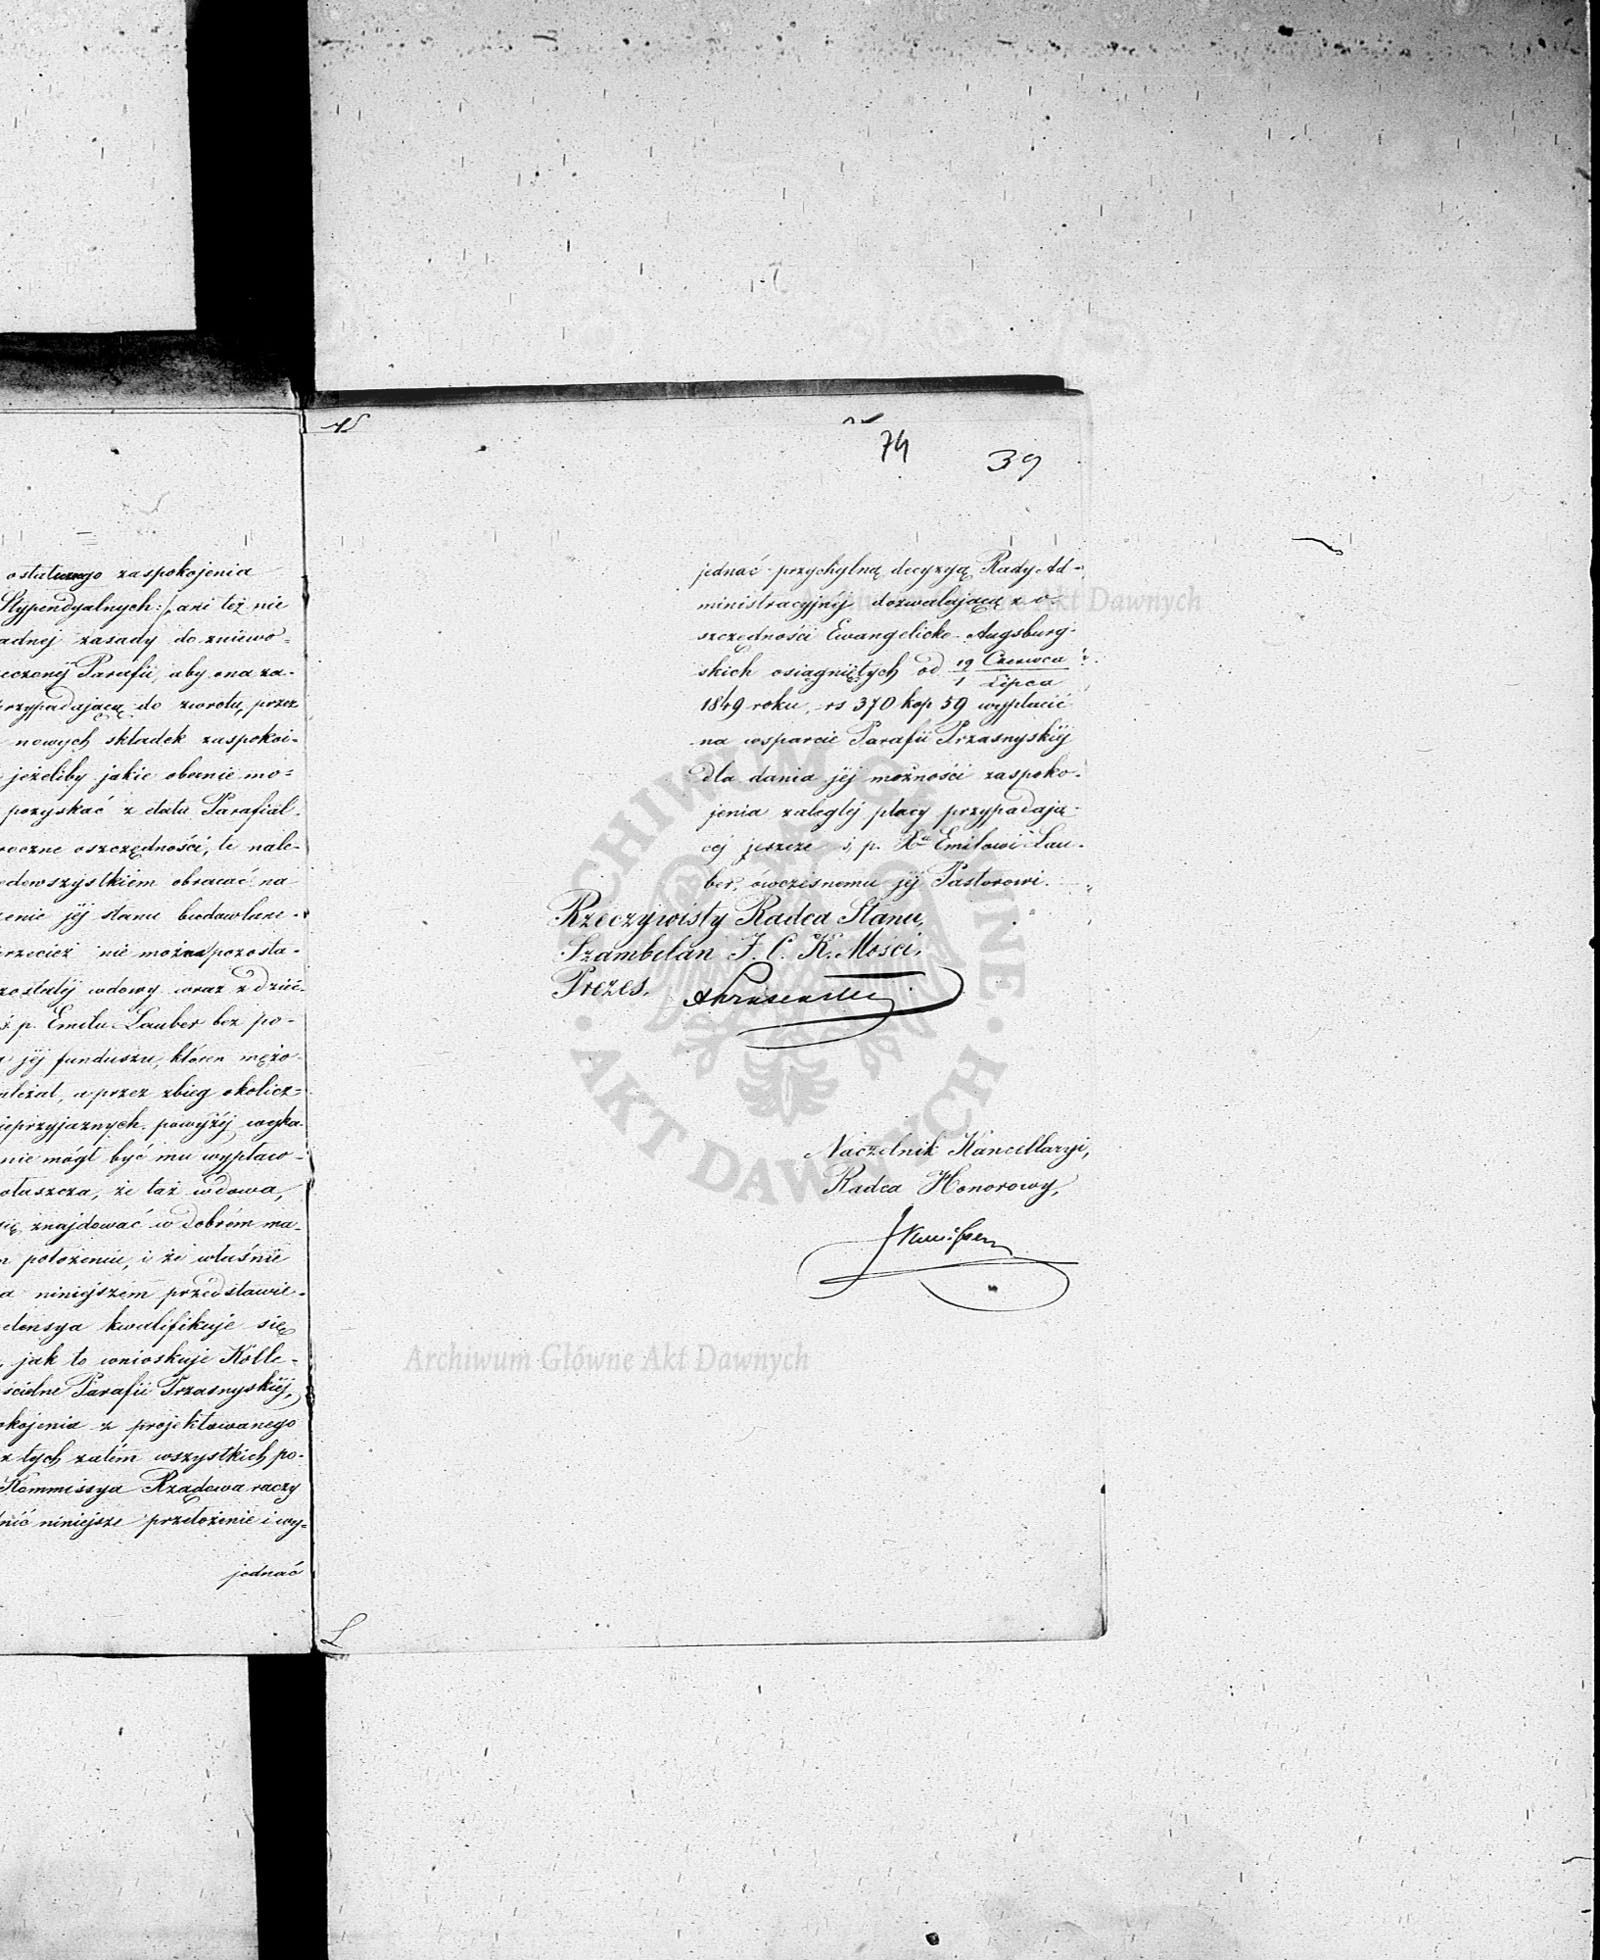 ostatecznego zaspokojenia
Stypendyalnych:/, ani też nie
adnej zasady do zniewo-
eczonej Parafii, aby ona za-
rzypadającą do zwrotu, przez
nowych składek zaspokoi-
jeżeliby jakie obecnie mo-
pozyskać z etatu Parafial-
roczne oszczędności, te nale-
edewszystkiem obracać na
enie jéj stanu budowlane-
rzecież nie można pozosta-
zostałéj wdowy wraz z dzie-
ś. p. Emilu Lauber bez po-
jéj funduszu, któren mężo-
ależał, a przez zbieg okolicz-
ieprzyjaznych powyżéj wyka-
nie mógł być mu wypłaco-
ołaszcza, że taż wdowa,
się znajdować w dobrém ma-
m położeniu, i że właśnie
a niniejszém przedstawie-
etensya kwalifikuje się
jak to wnioskuje Kolle-
ścielne Parafii Przasnyskiéj,
okojenia z projektowanego
z tych zatém wszystkich po-
Kommissya Rządowa raczy
nić niniejsze przełożenie i wy-
jednać
74
39
jednać przychylną decyzyą Rady Ad-
ministracyjnéj dozwalającą z o-
szczędności Ewangelicko-Augsburg-
skich osiągniętych od 19 Czerwca / 1 Lipca
1849 roku, rs 370 kop 59 wypłacić
na wsparcie Parafii Przasnyskiéj
dla dania jéj możności zaspoko-
jenia zaległéj płacy przypadają-
céj jeszcze ś. p. Xu Emilowi Lau-
ber, ówczesnemu jéj Pastorowi.
Rzeczywisty Radca Stanu,
Szambelan J. C. K. Mości,
Prezes,
Naczelnik Kancellaryi,
Radca Honorowy,
Archiwum Główne Akt Dawnych
ARCHIWUM GŁÓWNE
AKT DAWNYCH
Archiwum Główne Akt Dawnych